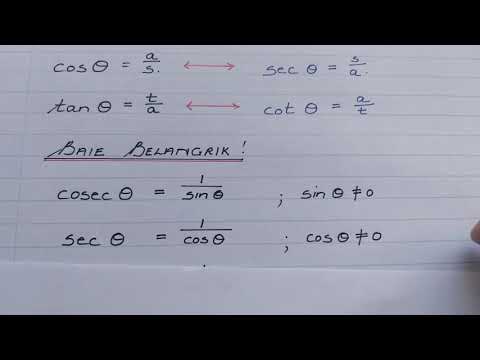 cos θ = a/s. ⟷ sec θ = s/a.
tan θ = t/a ⟷ cot θ = a/t
BAIE BELANGRIK!
cosec θ = 1/sin θ ; sin θ ≠ 0
sec θ = 1/cos θ ; cos θ ≠ 0